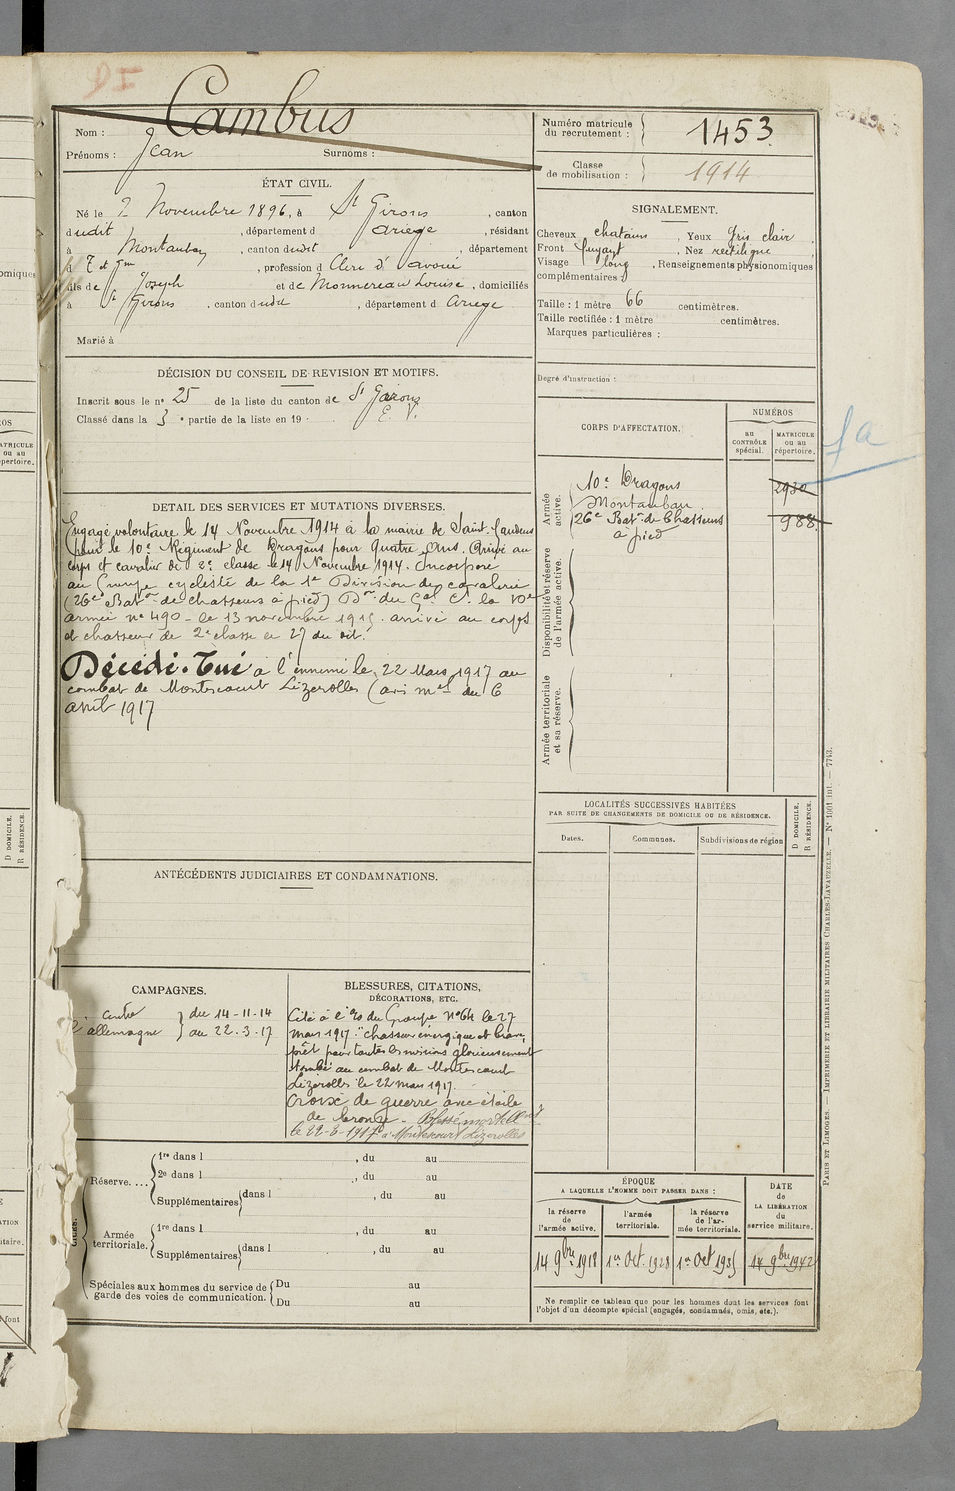 Nom : Cambus
Prénoms : Jean Surnoms :
Numéro matricule du recrutement : 1453
Classe de mobilisation : 1914
ÉTAT CIVIL.
Né le 2 Novembre 1896, à St Girons, canton
dudit, département d Ariège, résidant
à Montauban, canton dudit, département
d T et Gne, profession d Clerc d'avoué
fils de Joseph et de Monnereau Louise, domiciliés
à St Girons, canton dudit, département d Ariège
Marié à
SIGNALEMENT.
Cheveux chatains, Yeux gris clair,
Front fuyant, Nez rectiligne,
Visage long, Renseignements physionomiques
complémentaires :
Taille : 1 mètre 66 centimètres.
Taille rectifiée : 1 mètre centimètres.
Marques particulières :
Degré d'instruction :
DÉCISION DU CONSEIL DE REVISION ET MOTIFS.
Inscrit sous le n° 25 de la liste du canton de St Girons
Classé dans la 3e partie de la liste en 19 E. V.
CORPS D'AFFECTATION.
NUMÉROS
au CONTRÔLE spécial.
MATRICULE ou au répertoire.
Armée active.
10e Dragons 2930
Montauban
26e Bat. de Chasseurs 988
à pied
Disponibilité et réserve de l'armée active.
Armée territoriale et sa réserve.
1a
DÉTAIL DES SERVICES ET MUTATIONS DIVERSES.
Engagé volontaire le 14 Novembre 1914 à la mairie de Saint-Gaudens
pour le 10e Régiment de Dragons pour quatre ans. Arrivé au
corps et cavalier de 2e classe le 14 Novembre 1914. Incorporé
au Groupe cycliste de la 1e Division de cavalerie
(26e Baton de chasseurs à pied) Don du Gal Ct la
armée n° 490 - le 13 novembre 1915. arrivé au corps
et chasseur de 2e classe le 27 du dit.
Décédé. Tué à l'ennemi le 22 Mars 1917 au
combat de Montescourt Lizerolles (avis mel du 6
avril 1917
LOCALITÉS SUCCESSIVES HABITÉES
PAR SUITE DE CHANGEMENTS DE DOMICILE OU DE RÉSIDENCE.
Dates. Communes. Subdivisions de région
D DOMICILE. R RÉSIDENCE.
ANTÉCÉDENTS JUDICIAIRES ET CONDAMNATIONS.
CAMPAGNES.
contre du 14-11-14
l'allemagne au 22-3-17
BLESSURES, CITATIONS,
DÉCORATIONS, ETC.
Cité à l'o/ du Groupe n° 64 le 27
mars 1917 : "Chasseur énergique et brave,
prêt pour toutes les missions glorieusement
tombé au combat de Montescourt
Lizerolles le 22 mars 1917.
Croix de guerre avec étoile
de bronze. - Blessé mortellment
le 22-3-1917 à Montescourt Lizerolles
Réserve....
1re dans l , du au
2e dans l , du au
Supplémentaires dans l , du au
Armée territoriale.
1re dans l , du au
Supplémentaires dans l , du au
Spéciales aux hommes du service de garde des voies de communication.
Du au
Du au
ÉPOQUE
A LAQUELLE L'HOMME DOIT PASSER DANS :
la réserve de l'armée active.
l'armée territoriale.
la réserve de l'armée territoriale.
DATE de LA LIBÉRATION du service militaire.
14 9bre 1918 1er Oct. 1928 1er Oct 1935 14 9bre 1942
Ne remplir ce tableau que pour les hommes dont les services font
l'objet d'un décompte spécial (engagés, condamnés, omis, etc.).
PARIS ET LIMOGES. — IMPRIMERIE ET LIBRAIRIE MILITAIRES CHARLES-LAVAUZELLE. — N° 1001 int. — 7743.